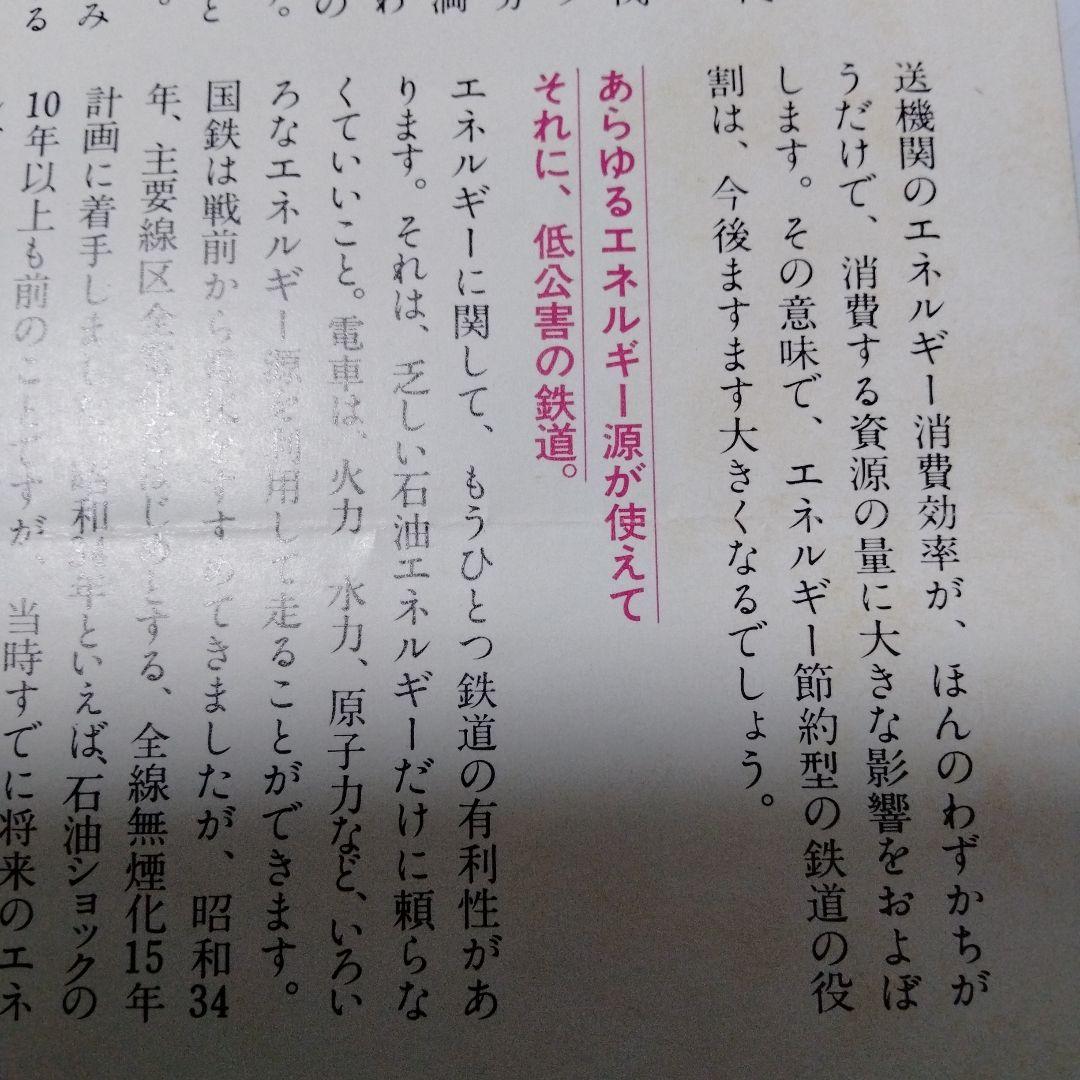 送機関のエネルギー消費効率が、ほんのわずかちが
うだけで、消費する資源の量に大きな影響をおよぼ
します。その意味で、エネルギー節約型の鉄道の役
割は、今後ますます大きくなるでしょう。
あらゆるエネルギー源が使えて
それに、低公害の鉄道。
エネルギーに関して、もうひとつ鉄道の有利性があ
ります。それは、乏しい石油エネルギーだけに頼らな
くていいこと。電車は、火力 水力、原子力など、いろい
ろなエネルギー源を利用して走ることができます。
国鉄は戦前から すすめてきましたが、昭和34
年、主要線区全 はじめとする、全線無煙化15年
計画に着手しま 昭和 年といえば、石油ショックの
10年以上も前のことですが、当時すでに将来のエネ